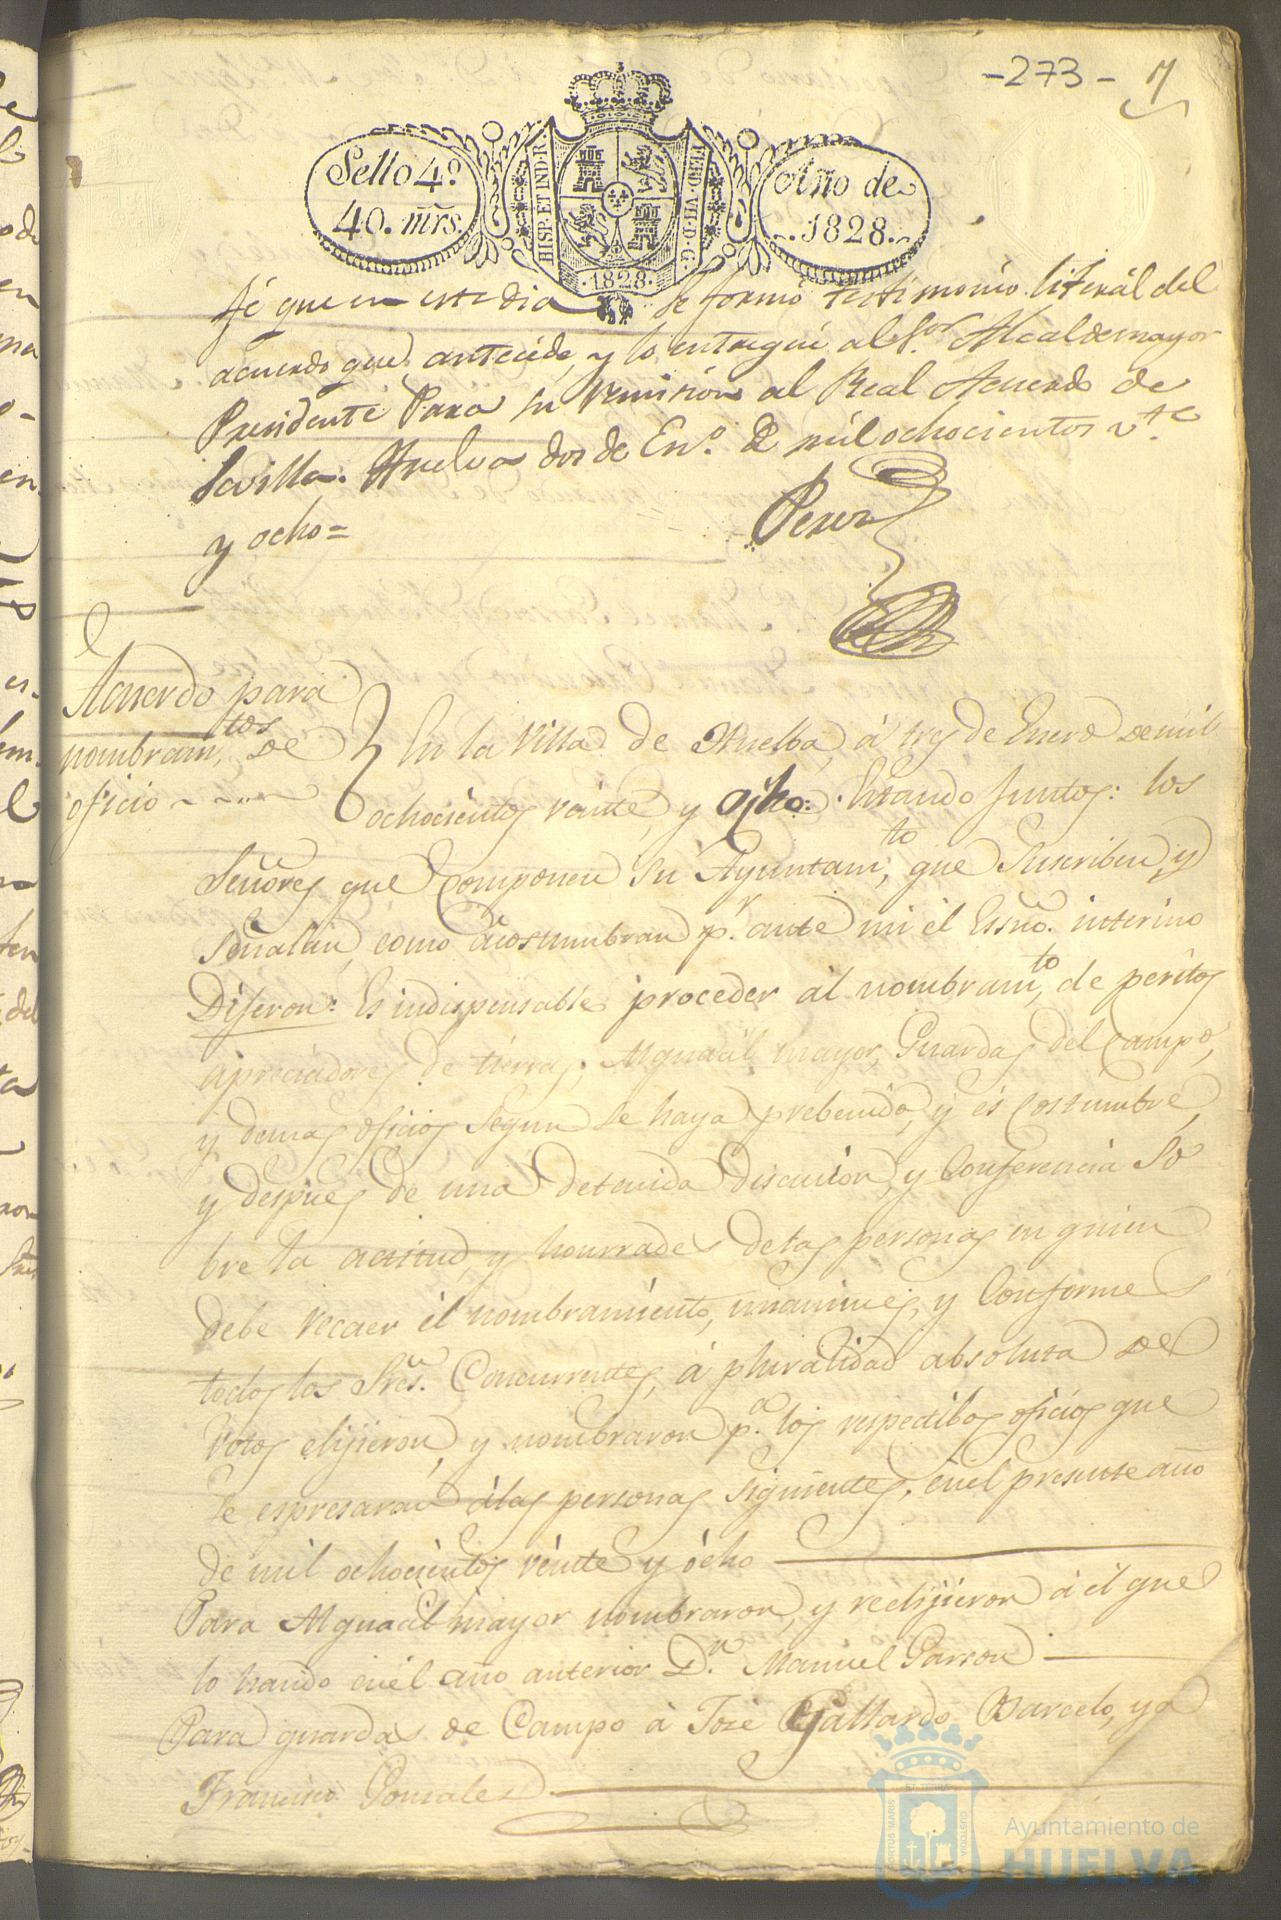 -273- 7
Sello 4º.
40. mrs.
HISP. ET IND. R.
FERD. VII. D. G.
1828.
Año de
1828.
fé que en este dia se formó testimonio literál del
acuerdo que antecede, y lo entregué al Sor. Alcalde mayor
Presidente Para su remision al Real Acuerdo de
Sevilla. Huelva dos de Eno. de mil ochocientos vte.
y ocho=
Perez
Acuerdo para
nombramtos. de
oficio
En la Villa de Huelba, á tres de Enero de mil
ochocientos veinte, y ocho: Estando Juntos: los
Señores que componen su Ayuntamto, que Suscriben, y
Señalan, como acostumbran pr. ante mi el Essno. interino
Dijeron: Es indispensable proceder al nombramto, de peritos
apreciadores de tierras, Alguacil mayor, Guardas del Campo,
y demas oficios Segun se haya prebenido, y és Costumbre,
y despues de una detenida discucion, y Conferencia So
bre la actitud, y hourrades delas personas en quien
debe recaer él nombramiento, unanimes, y Conformes
todos los Sres. Concurrentes, á pluralidad absoluta de
Votos elijieron, y nombraron pa. los respectibos oficios que
se espresaran álas personas Siguientes, enel presente año
de mil ochocientos veinte y ócho
Para Alguacil mayor nombraron, y reelijieron á él que
lo hasido enél año anterior Dn. Manuel Garzon
Para guardas de Campo à José Gallardo Barcelo, y a
Francisco Gonzales
PORTUS MARIS ET TERRAE CUSTODIA
Ayuntamiento de
HUELVA